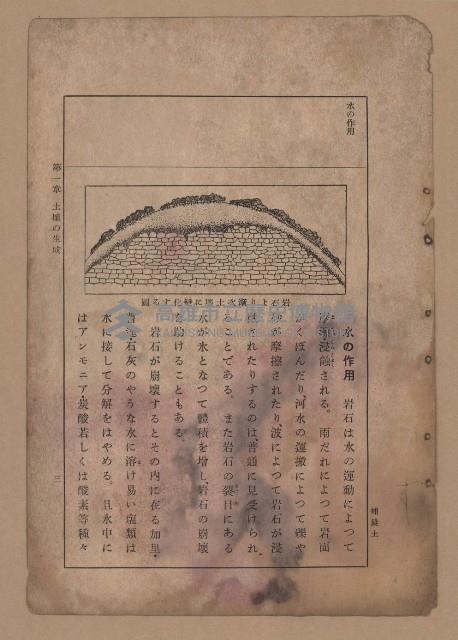 水の作用
岩石より漸次土壤に變化する圖
水の作用 岩石は水の運動によつて
浸蝕される。雨だれによつて岩面
くぼんだり、河水の運搬によつて礫や
が摩擦されたり、波によつて岩石が浸
されたりするのは、普通に見受けられ
ることである。また岩石の裂目にある
水が氷となつて體積を増し、岩石の崩壞
を助けることもある。
岩石が崩壞するとその内に在る加里・
石灰のやうな水に溶け易い塩類は
水に接して分解をはやめる。且水中に
はアンモニア・炭酸若しくは酸素等種々
第一章 土壤の生成
三
高雄市立歷史博物館